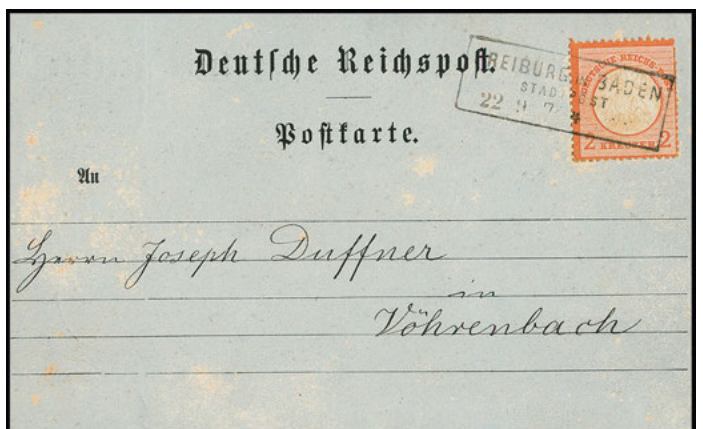 Deutsche Reichspost.
FREIBURG IN BADEN
STADTPOST
22 9
DEUTSCHE REICHS-POST
2 KREUZER 2
Postkarte.
An
Herrn Joseph Duffner
in
Vöhrenbach